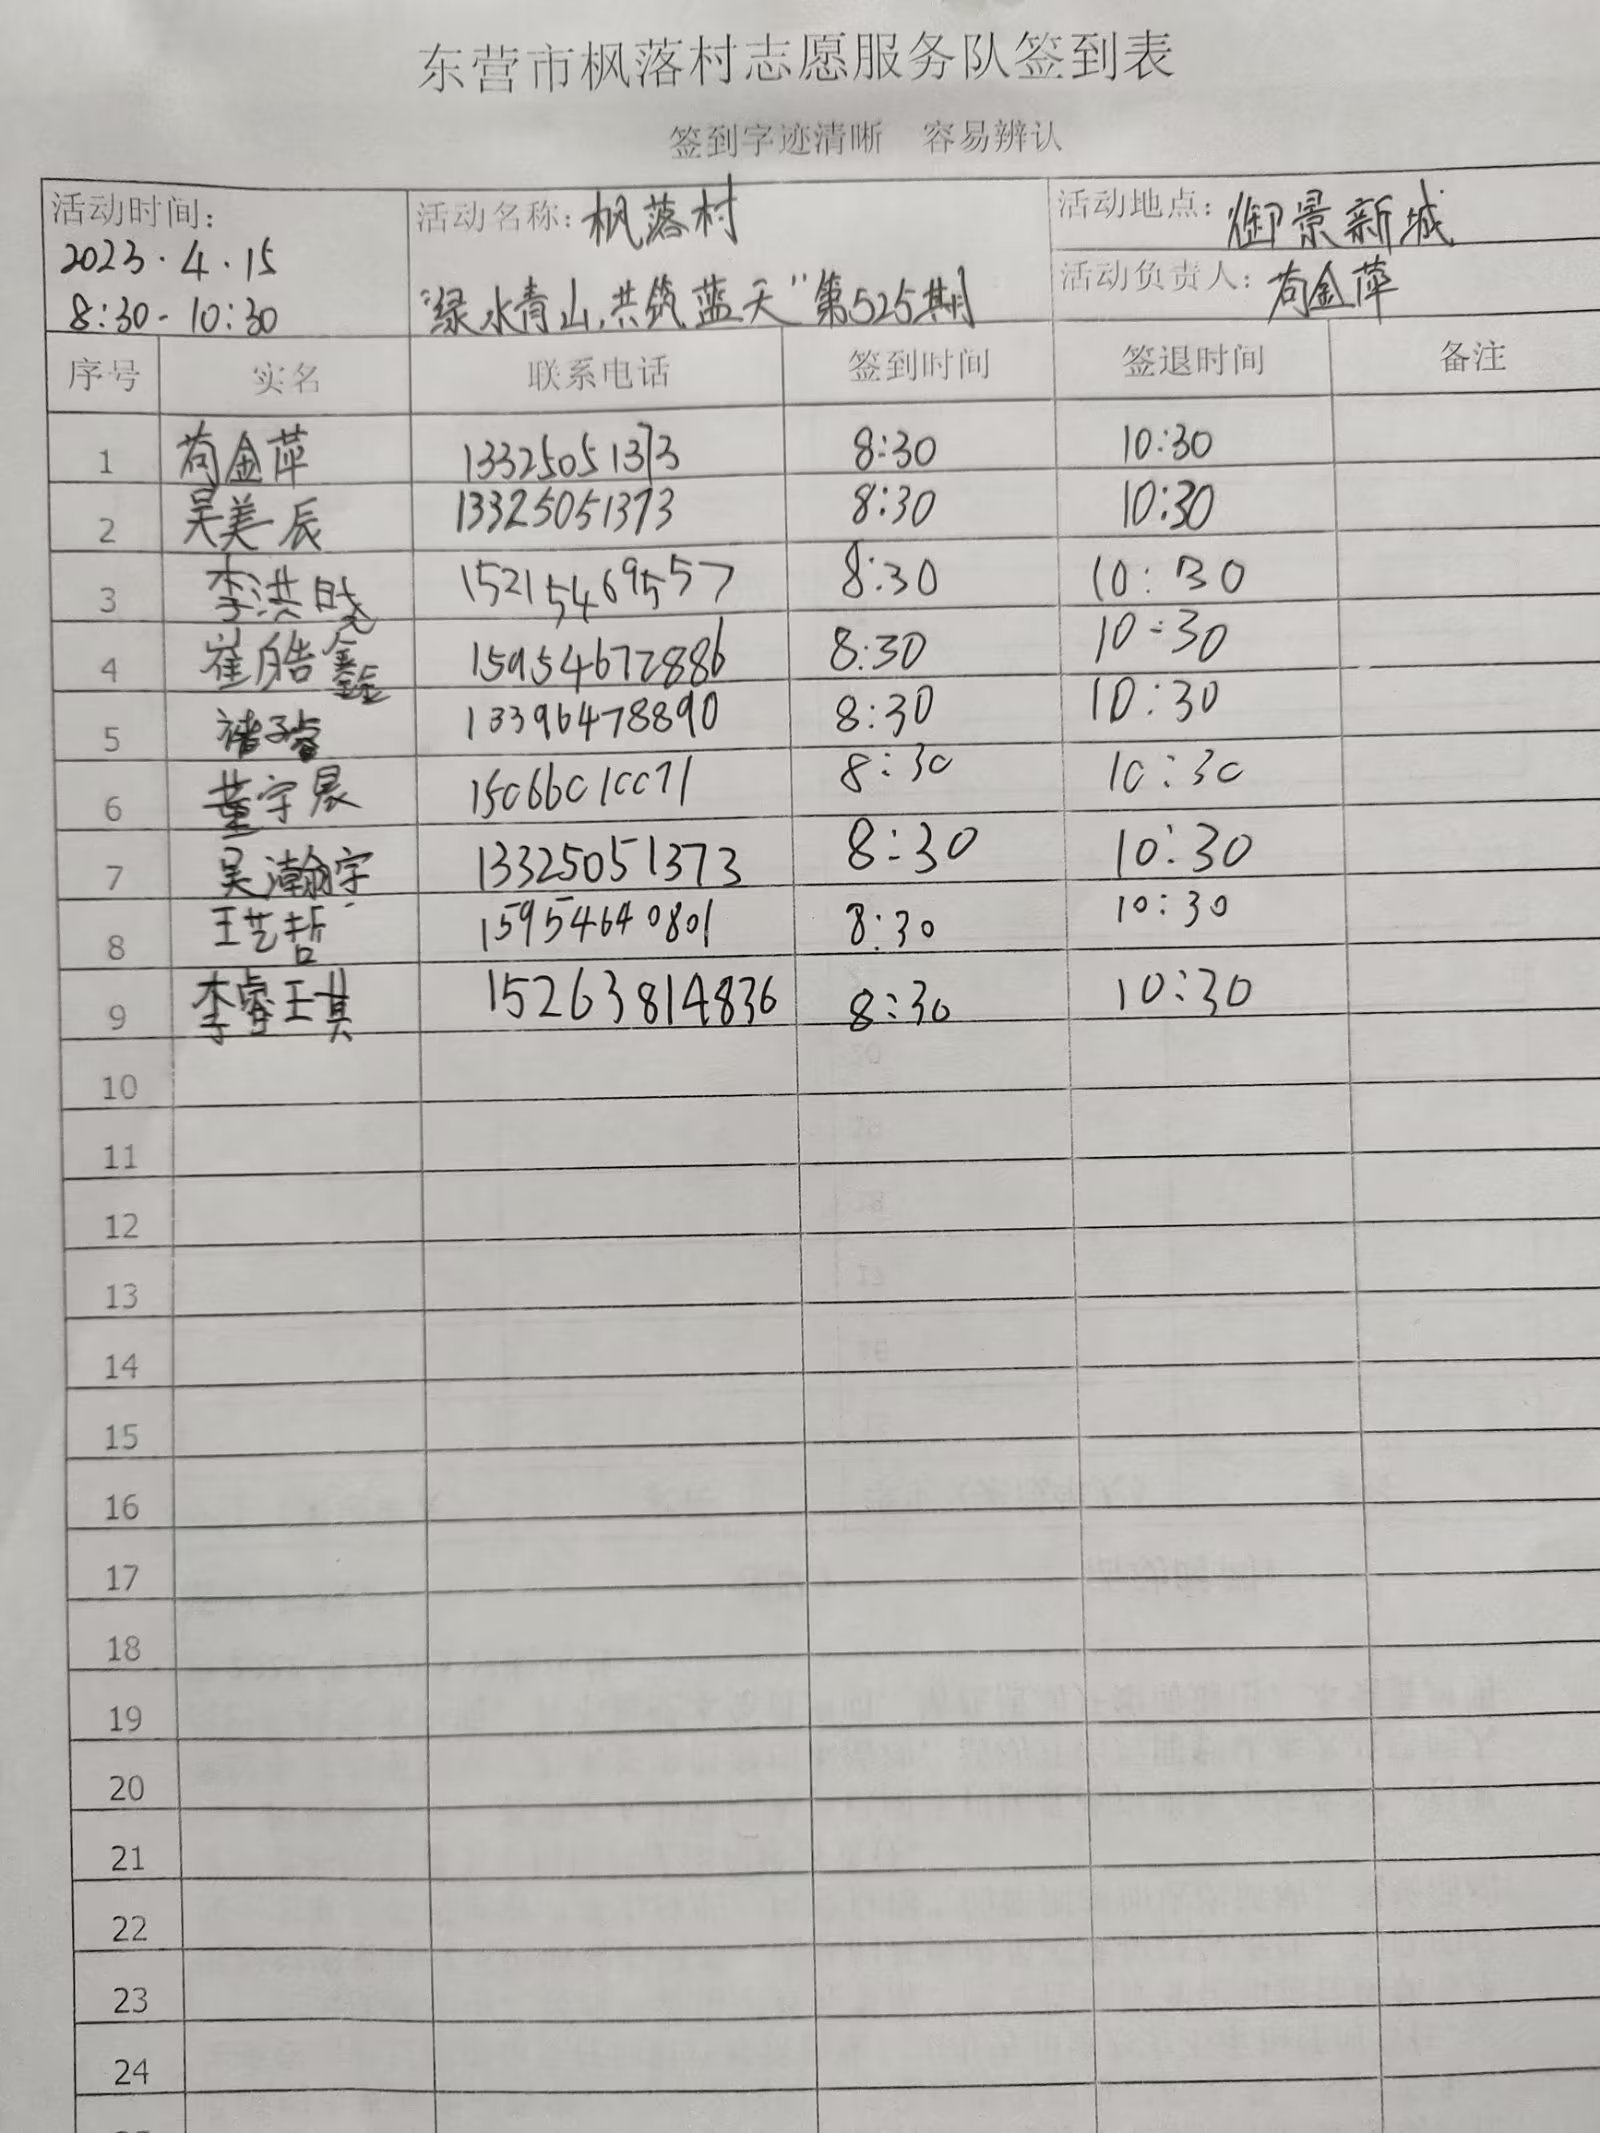 东营市枫落村志愿服务队签到表
签到字迹清晰 容易辨认
活动时间: 2023.4.15 8:30-10:30
活动名称: 枫落村 "绿水青山,共筑蓝天"第525期
活动地点: 御景新城
活动负责人: 苟金萍
序号 实名 联系电话 签到时间 签退时间 备注
1 苟金萍 13325051373 8:30 10:30
2 吴美辰 13325051373 8:30 10:30
3 李洪晟 15215469557 8:30 10:30
4 崔皓鑫 15954672886 8:30 10:30
5 褚子睿 13396478890 8:30 10:30
6 董宇晨 15066010071 8:30 10:30
7 吴瀚宇 13325051373 8:30 10:30
8 王艺哲 15954640801 8:30 10:30
9 李睿琪 15263814836 8:30 10:30
10
11
12
13
14
15
16
17
18
19
20
21
22
23
24